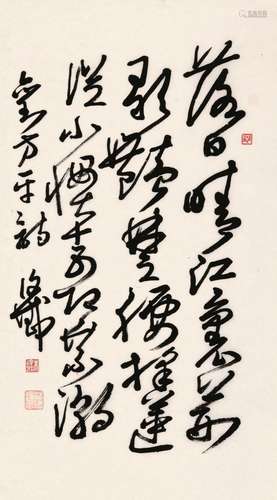 落日晴江裏荆
歌艷楚腰採蓮
從小惯十五即乘潮
刘方平诗